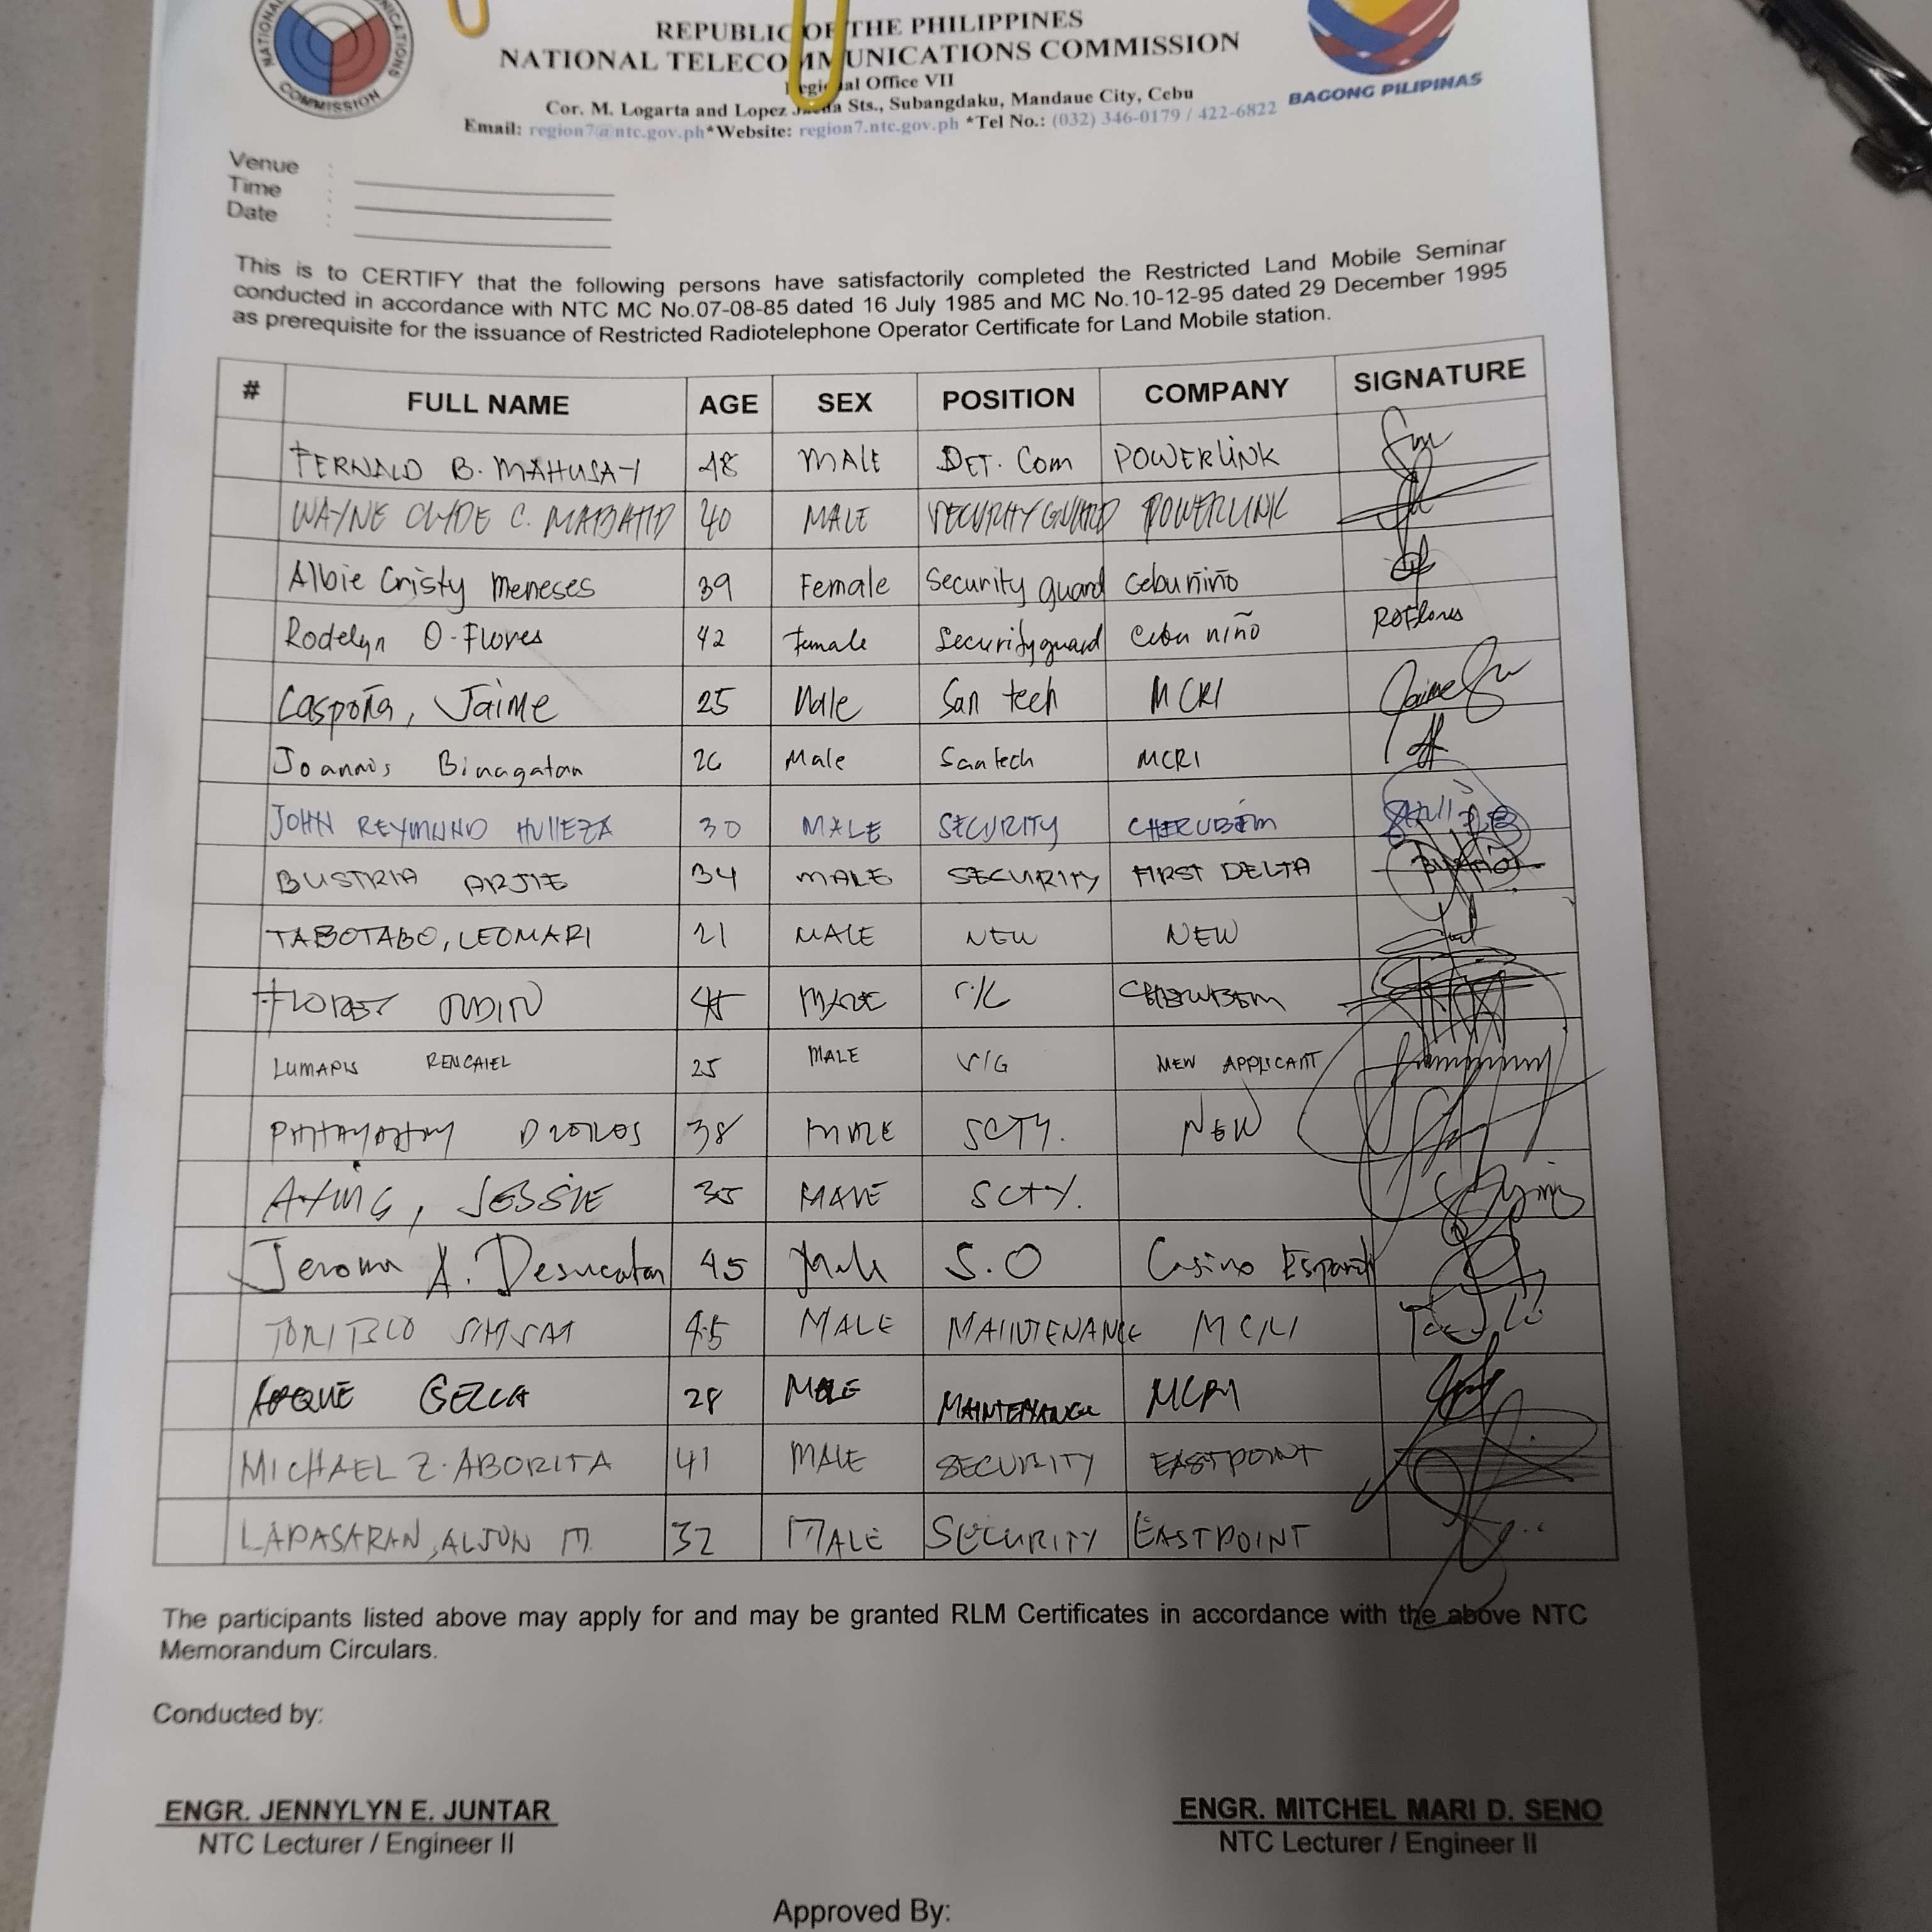 NATIONAL
COMMISSION
REPUBLIC OF THE PHILIPPINES
NATIONAL TELECOMMUNICATIONS COMMISSION
Regional Office VII
Cor. M. Logarta and Lopez Jaena Sts., Subangdaku, Mandaue City, Cebu
Email: region7@ntc.gov.ph*Website: region7.ntc.gov.ph *Tel No.: (032) 346-0179 / 422-6822
BAGONG PILIPINAS
Venue :
Time :
Date :
This is to CERTIFY that the following persons have satisfactorily completed the Restricted Land Mobile Seminar
conducted in accordance with NTC MC No.07-08-85 dated 16 July 1985 and MC No.10-12-95 dated 29 December 1995
as prerequisite for the issuance of Restricted Radiotelephone Operator Certificate for Land Mobile station.
# FULL NAME AGE SEX POSITION COMPANY SIGNATURE
FERNALD B. MAHUSAY 48 MALE DET. Com POWERLINK
WAYNE CLYDE C. MABATID 40 MALE SECURITY GUARD POWERLINK
Albie Cristy Meneses 39 Female Security guard Cebu niño
Rodelyn O-Flores 42 Female Security guard Cebu niño ROFlores
Caspoña, Jaime 25 Male San tech MCRI
Joannis Binagatan 26 Male San tech MCRI
JOHN REYMUND HULLEZA 30 MALE SECURITY
BUSTRIA ARJIE 34 MALE SECURITY FIRST DELTA
TABOTABO, LEOMARI 21 MALE NEW NEW
MALE
25 MALE S/G NEW APPLICANT
38 MALE SCTY. NEW
AYING, JESSIE 35 MALE SCTY.
Jerome A. Desucatan 45 Male S.O Casino Español
45 MALE MAINTENANCE MCRI
28 MALE MAINTENANCE MCRI
MICHAEL Z. ABORITA 41 MALE SECURITY EASTPOINT
LAPASARAN, ALJUN M. 32 MALE SECURITY EASTPOINT
The participants listed above may apply for and may be granted RLM Certificates in accordance with the above NTC
Memorandum Circulars.
Conducted by:
ENGR. JENNYLYN E. JUNTAR ENGR. MITCHEL MARI D. SENO
NTC Lecturer / Engineer II NTC Lecturer / Engineer II
Approved By: